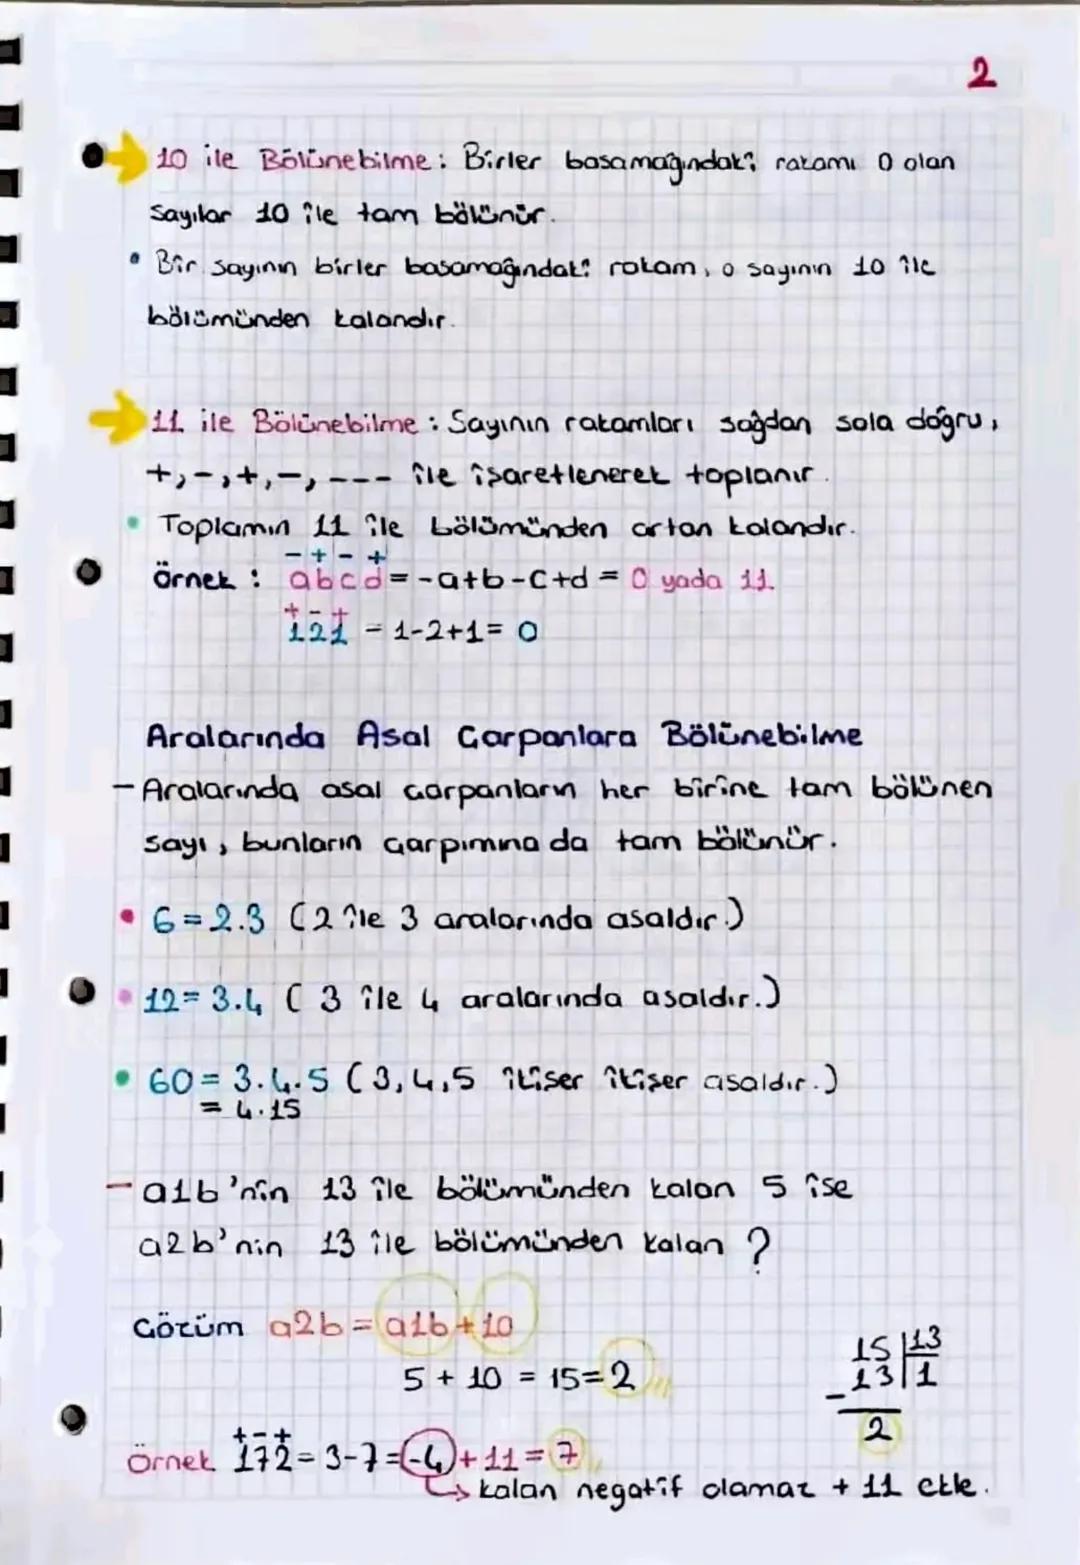 2
10 ile Bölünebilme : Birler basamağındaki rakamı 0 olan
sayılar 10 ile tam bölünür.
• Bir sayının birler basamağındaki rakam, o sayının 10 ile
bölümünden kalandır.
11 ile Bölünebilme : Sayının rakamları sağdan sola doğru,
+,-,+,-, --- ile işaretlenerek toplanır.
• Toplamın 11 ile bölümünden artan kalandır.
- + - +
Örnek : abcd = -a+b-c+d = 0 yada 11.
+ - +
121 = 1-2+1= 0
Aralarında Asal Çarpanlara Bölünebilme
- Aralarında asal çarpanların her birine tam bölünen
sayı, bunların çarpımına da tam bölünür.
• 6 = 2.3 (2 ile 3 aralarında asaldır.)
• 12 = 3.4 ( 3 ile 4 aralarında asaldır.)
• 60 = 3.4.5 (3,4,5 ikişer ikişer asaldır.)
= 4.15
- a1b'nin 13 ile bölümünden kalan 5 ise
a2b'nin 13 ile bölümünden kalan ?
Çözüm a2b = a1b + 10
5 + 10 = 15 = 2
15 | 13
- 13 | 1
2
+ - +
Örnek 172 = 3-7 = -4 + 11 = 7
↳ kalan negatif olamaz + 11 ekle.